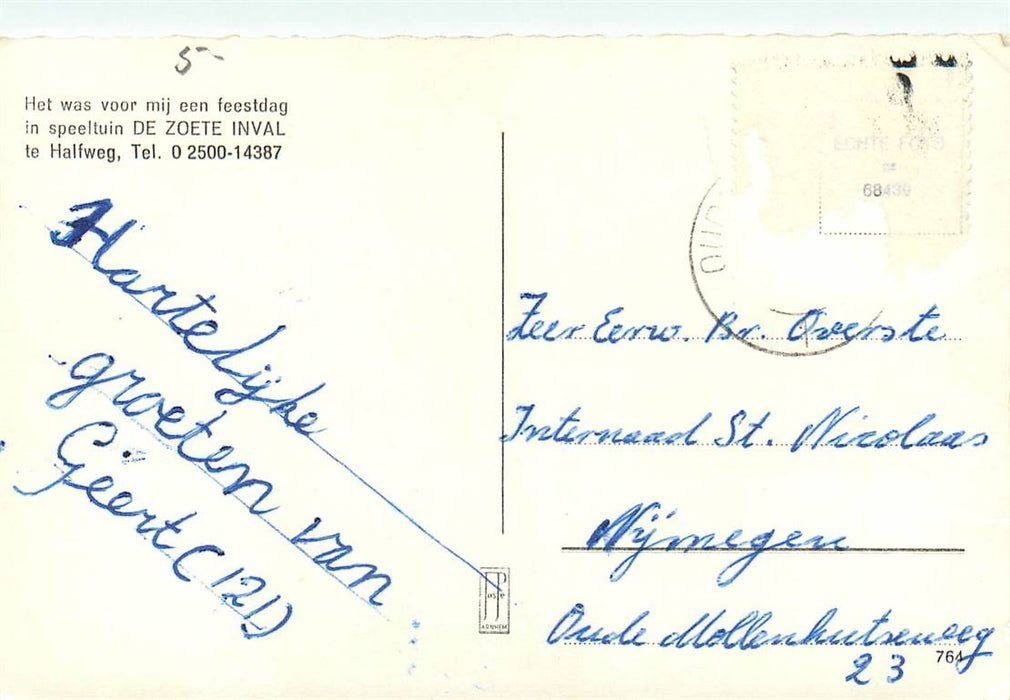 5-
Het was voor mij een feestdag
in speeltuin DE ZOETE INVAL
te Halfweg, Tel. 0 2500-14387
Hartelijke
groeten van
Geert (121)
ECHTE FOTO
68439
Zeer Eerw. Br. Overste
Internaad St. Nicolaas
Nijmegen
Oude Mollenhutseweg
23
764
JosPe
ARNHEM